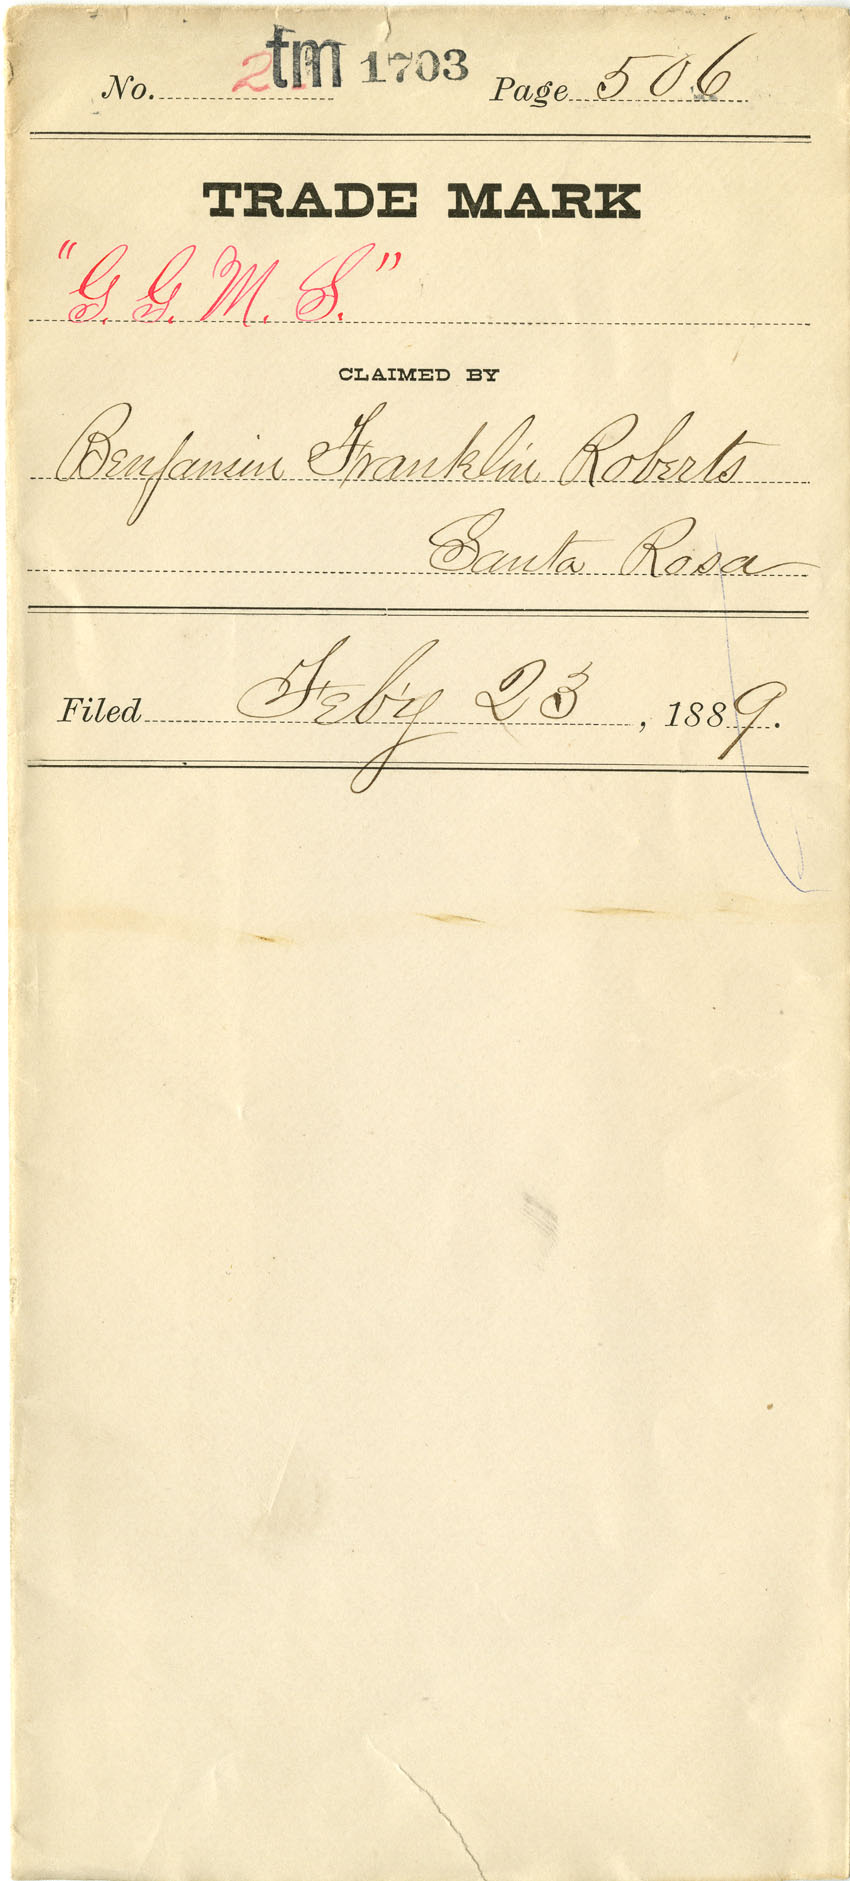 No. tm 1703 Page 506
TRADE MARK
"G. G. M. S."
CLAIMED BY
Benjamin Franklin Roberts
Santa Rosa
Filed Feb'y 23, 1889.